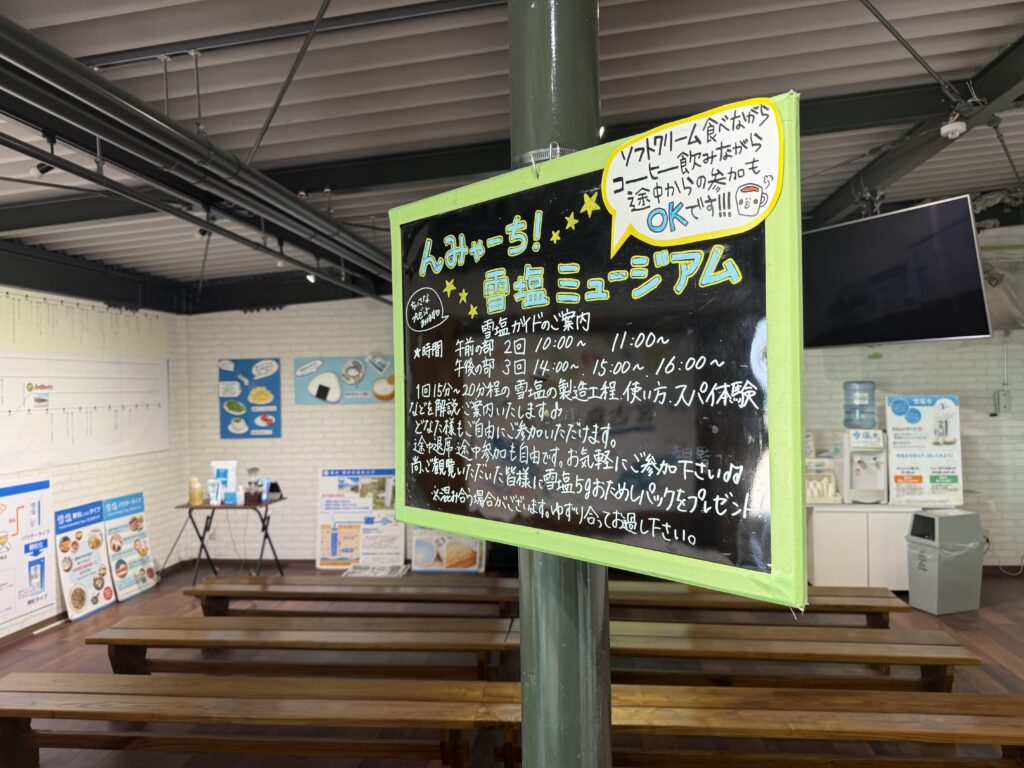 ソフトクリーム食べながら
コーヒー飲みながら
途中からの参加も
OKです!!!
んみゃーち!
雪塩ミュージアム
雪塩ガイドのご案内
★時間 午前の部 2回 10:00~ 11:00~
午後の部 3回 14:00~、15:00~ 16:00~
1回15分~20分程の雪塩の製造工程、使い方、スパイ体験
などを解説・ご案内いたします♪
どなた様もご自由にご参加いただけます。
途中退席・途中参加も自由です。お気軽にご参加下さい♪♪
尚、ご観覧いただいた皆様に雪塩5gおためしパックをプレゼント!
※混み合う場合がございます。ゆずり合ってお過し下さい。
雪塩
パウダータイプ
顆粒タイプ
雪塩 パウダータイプ
雪塩水